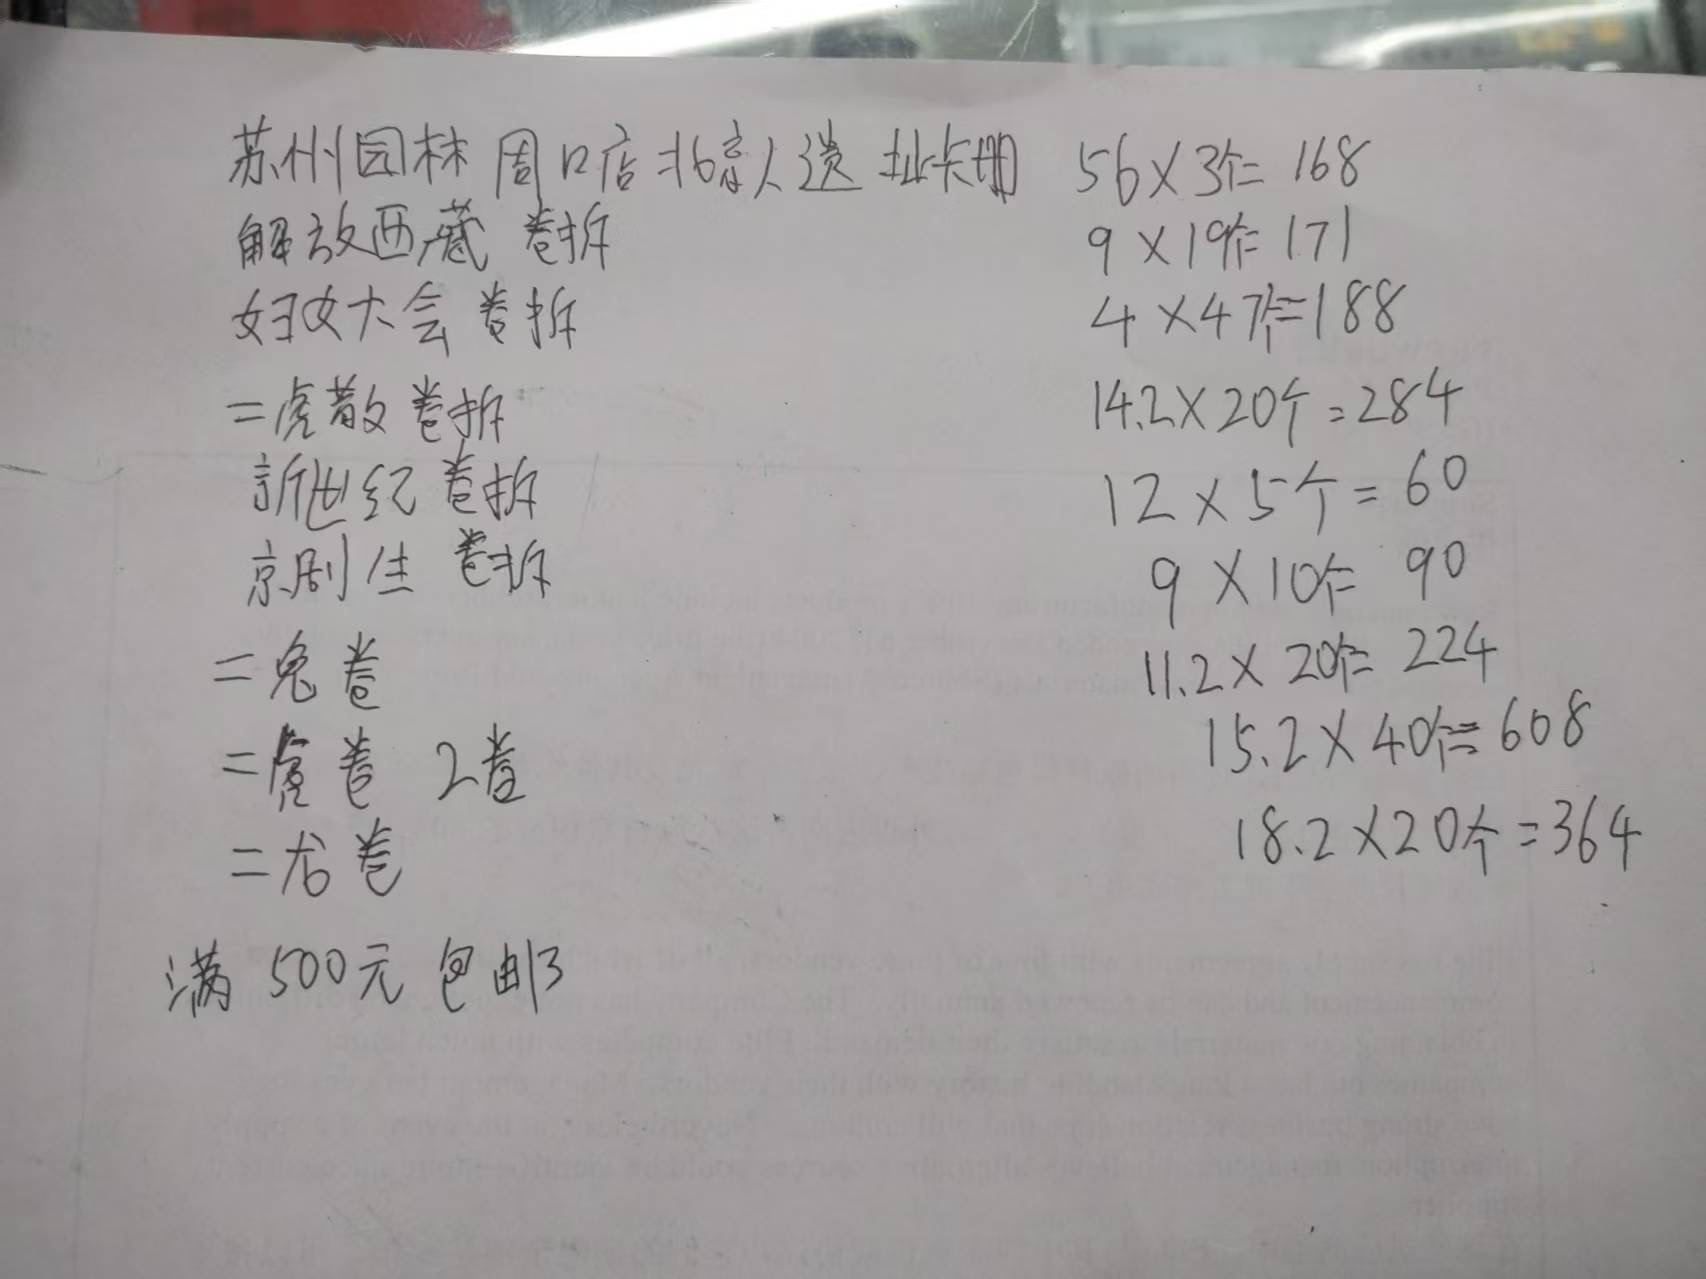 苏州园林 周口店北京人遗址卡册 56×3个=168
解放西藏 卷拆 9×19个=171
妇女大会卷拆 4×47个=188
二虎散卷拆 14.2×20个=284
新世纪卷拆 12×5个=60
京剧生 卷拆 9×10个=90
二兔卷 11.2×20个=224
二虎卷 2卷 15.2×40个=608
二龙卷 18.2×20个=364
满500元包邮